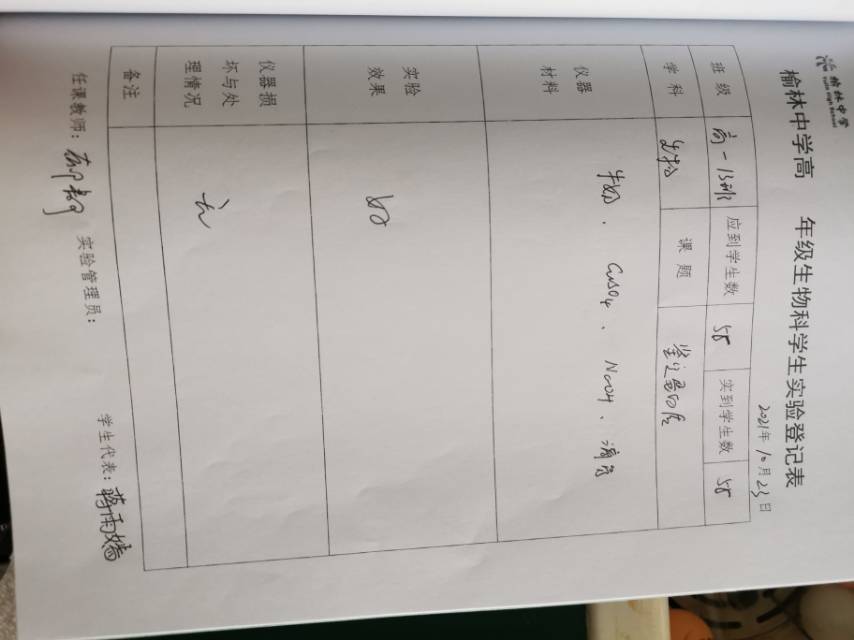 榆林中学
Yulin High School
榆林中学高 年级生物科学生实验登记表
2021年10月23日
班级 高一13班 应到学生数 58 实到学生数 58
学科 生物 课题 鉴定蛋白质
仪器材料 牛奶、CuSO4、NaOH、滴管
实验效果 好
仪器损坏与处理情况 无
备注
任课教师： 实验管理员： 学生代表：蒋雨嫱